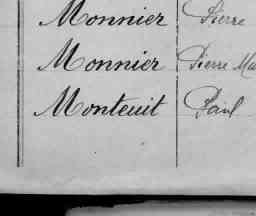 Monnier Pierre
Monnier Pierre
Monteuit Paul